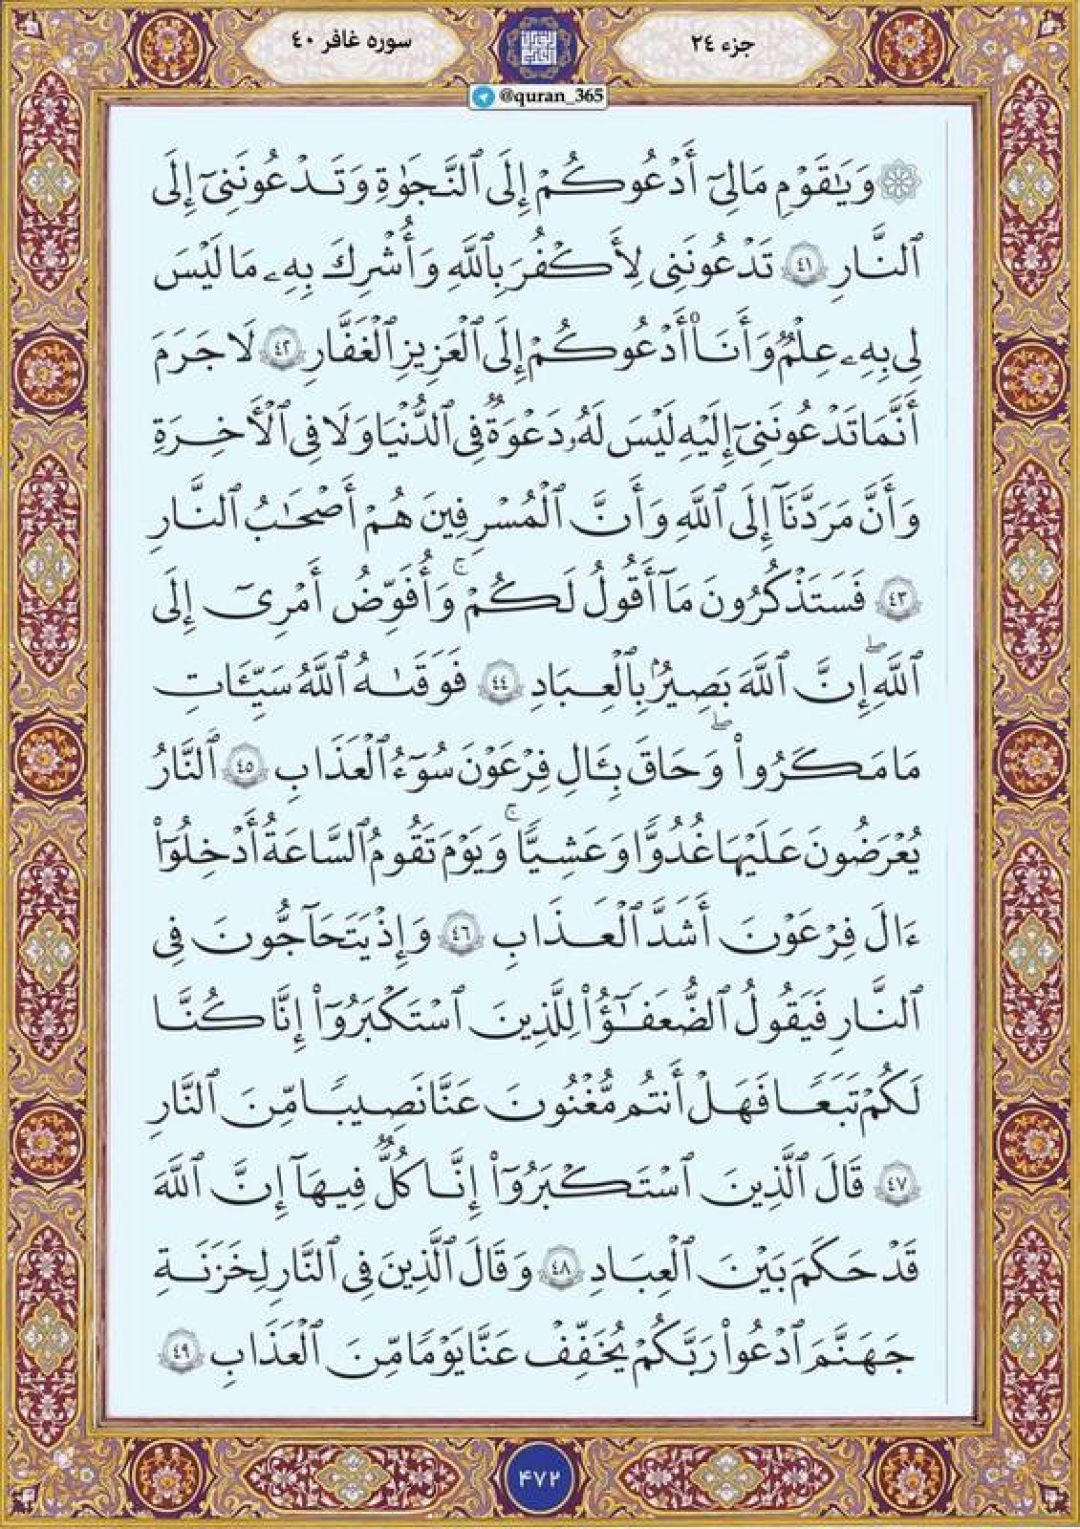 جزء ٢٤
سوره غافر ٤٠
@quran_365
۞ وَيَٰقَوْمِ مَا لِىٓ أَدْعُوكُمْ إِلَى ٱلنَّجَوٰةِ وَتَدْعُونَنِىٓ إِلَى
ٱلنَّارِ ٤١ تَدْعُونَنِى لِأَكْفُرَ بِٱللَّهِ وَأُشْرِكَ بِهِۦ مَا لَيْسَ
لِى بِهِۦ عِلْمٌ وَأَنَا۠ أَدْعُوكُمْ إِلَى ٱلْعَزِيزِ ٱلْغَفَّٰرِ ٤٢ لَا جَرَمَ
أَنَّمَا تَدْعُونَنِىٓ إِلَيْهِ لَيْسَ لَهُۥ دَعْوَةٌ فِى ٱلدُّنْيَا وَلَا فِى ٱلْأَخِرَةِ
وَأَنَّ مَرَدَّنَآ إِلَى ٱللَّهِ وَأَنَّ ٱلْمُسْرِفِينَ هُمْ أَصْحَٰبُ ٱلنَّارِ
٤٣ فَسَتَذْكُرُونَ مَآ أَقُولُ لَكُمْ ۚ وَأُفَوِّضُ أَمْرِىٓ إِلَى
ٱللَّهِ ۚ إِنَّ ٱللَّهَ بَصِيرٌۢ بِٱلْعِبَادِ ٤٤ فَوَقَىٰهُ ٱللَّهُ سَيِّـَٔاتِ
مَا مَكَرُوا۟ ۖ وَحَاقَ بِـَٔالِ فِرْعَوْنَ سُوٓءُ ٱلْعَذَابِ ٤٥ ٱلنَّارُ
يُعْرَضُونَ عَلَيْهَا غُدُوًّا وَعَشِيًّا ۚ وَيَوْمَ تَقُومُ ٱلسَّاعَةُ أَدْخِلُوٓا۟
ءَالَ فِرْعَوْنَ أَشَدَّ ٱلْعَذَابِ ٤٦ وَإِذْ يَتَحَآجُّونَ فِى
ٱلنَّارِ فَيَقُولُ ٱلضُّعَفَٰٓؤُا۟ لِلَّذِينَ ٱسْتَكْبَرُوٓا۟ إِنَّا كُنَّا
لَكُمْ تَبَعًا فَهَلْ أَنتُم مُّغْنُونَ عَنَّا نَصِيبًا مِّنَ ٱلنَّارِ
٤٧ قَالَ ٱلَّذِينَ ٱسْتَكْبَرُوٓا۟ إِنَّا كُلٌّ فِيهَآ إِنَّ ٱللَّهَ
قَدْ حَكَمَ بَيْنَ ٱلْعِبَادِ ٤٨ وَقَالَ ٱلَّذِينَ فِى ٱلنَّارِ لِخَزَنَةِ
جَهَنَّمَ ٱدْعُوا۟ رَبَّكُمْ يُخَفِّفْ عَنَّا يَوْمًا مِّنَ ٱلْعَذَابِ ٤٩
۴۷۲